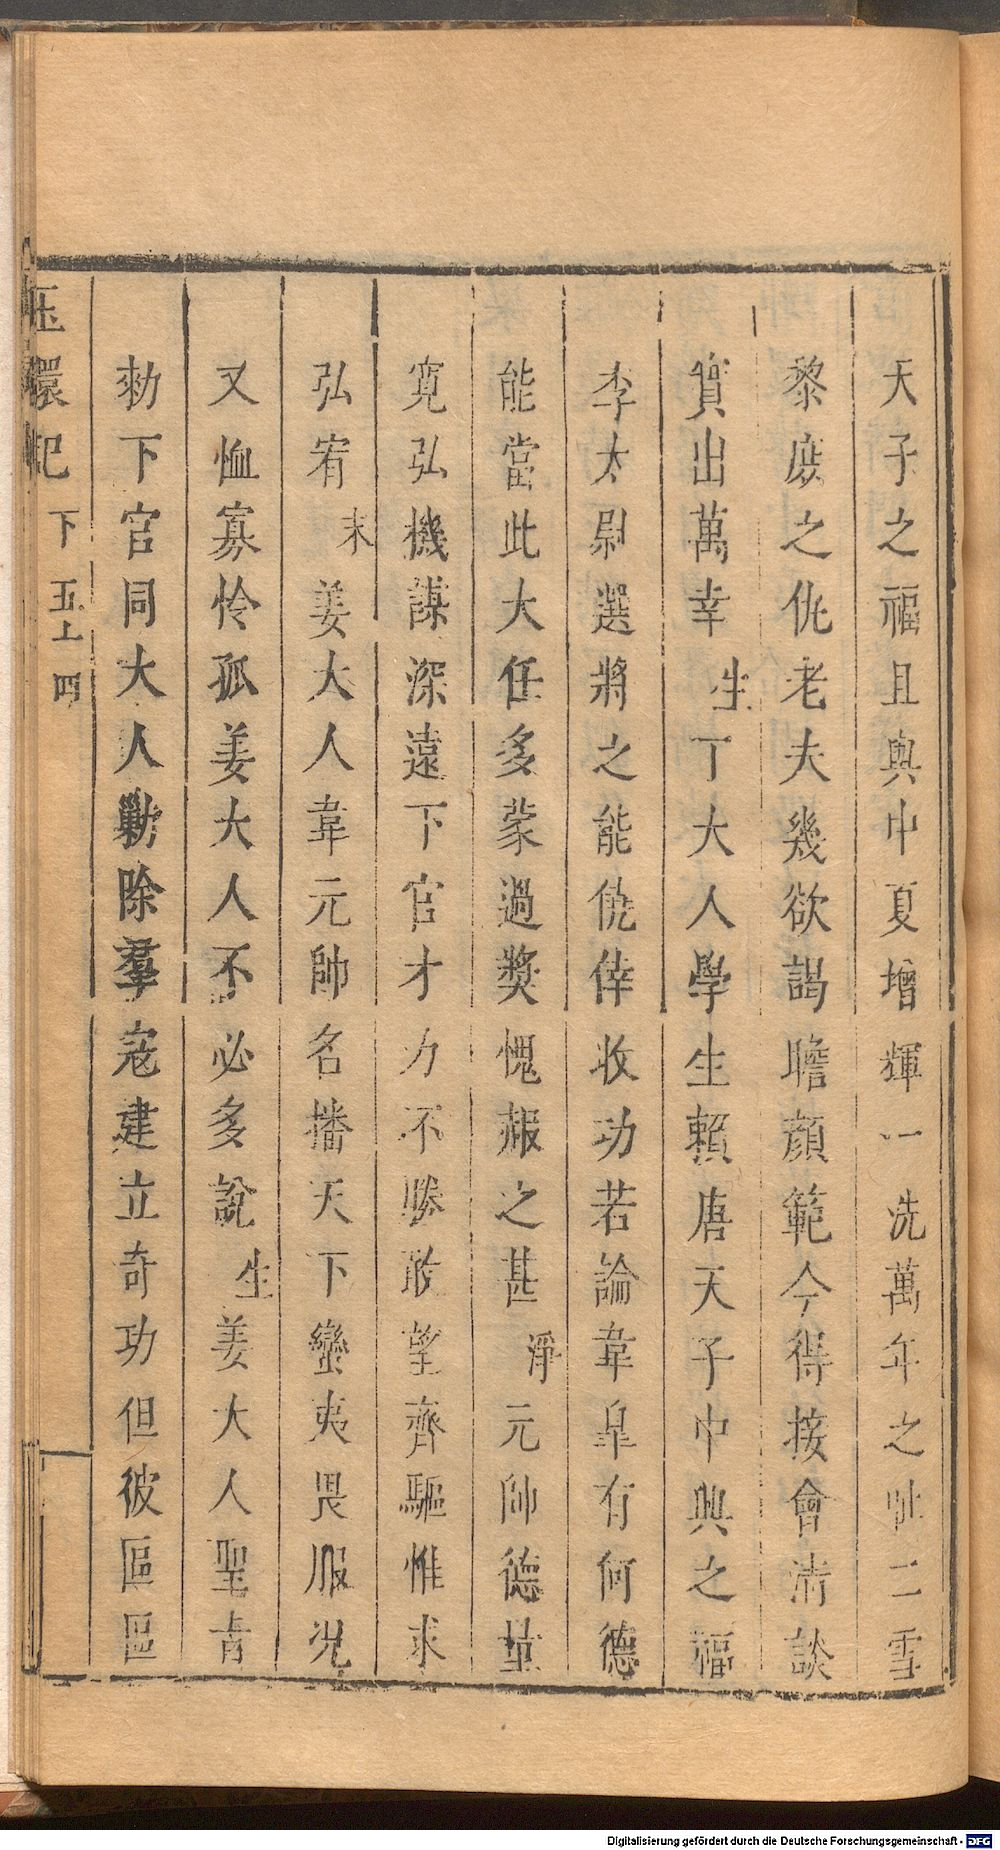 天子之福且與中夏增輝一洗萬年之恥二雪
黎庶之仇老夫幾欲謁瞻顏範今得接會清談
實出萬幸生丁大人學生賴唐天子中興之福
李太尉選將之能僥倖收功若論韋皐有何德
能當此大任多蒙過獎愧赧之甚淨元帥德量
寛弘機謀深遠下官才力不勝敢望齊驅惟求
弘宥末姜大人韋元帥名播天下蠻夷畏服况
又恤寡怜孤姜大人不必多說生姜大人聖旨
勑下官同大人勦除羣寇建立奇功但彼區區
玉環記 下 五上 四
Digitalisierung gefördert durch die Deutsche Forschungsgemeinschaft - DFG